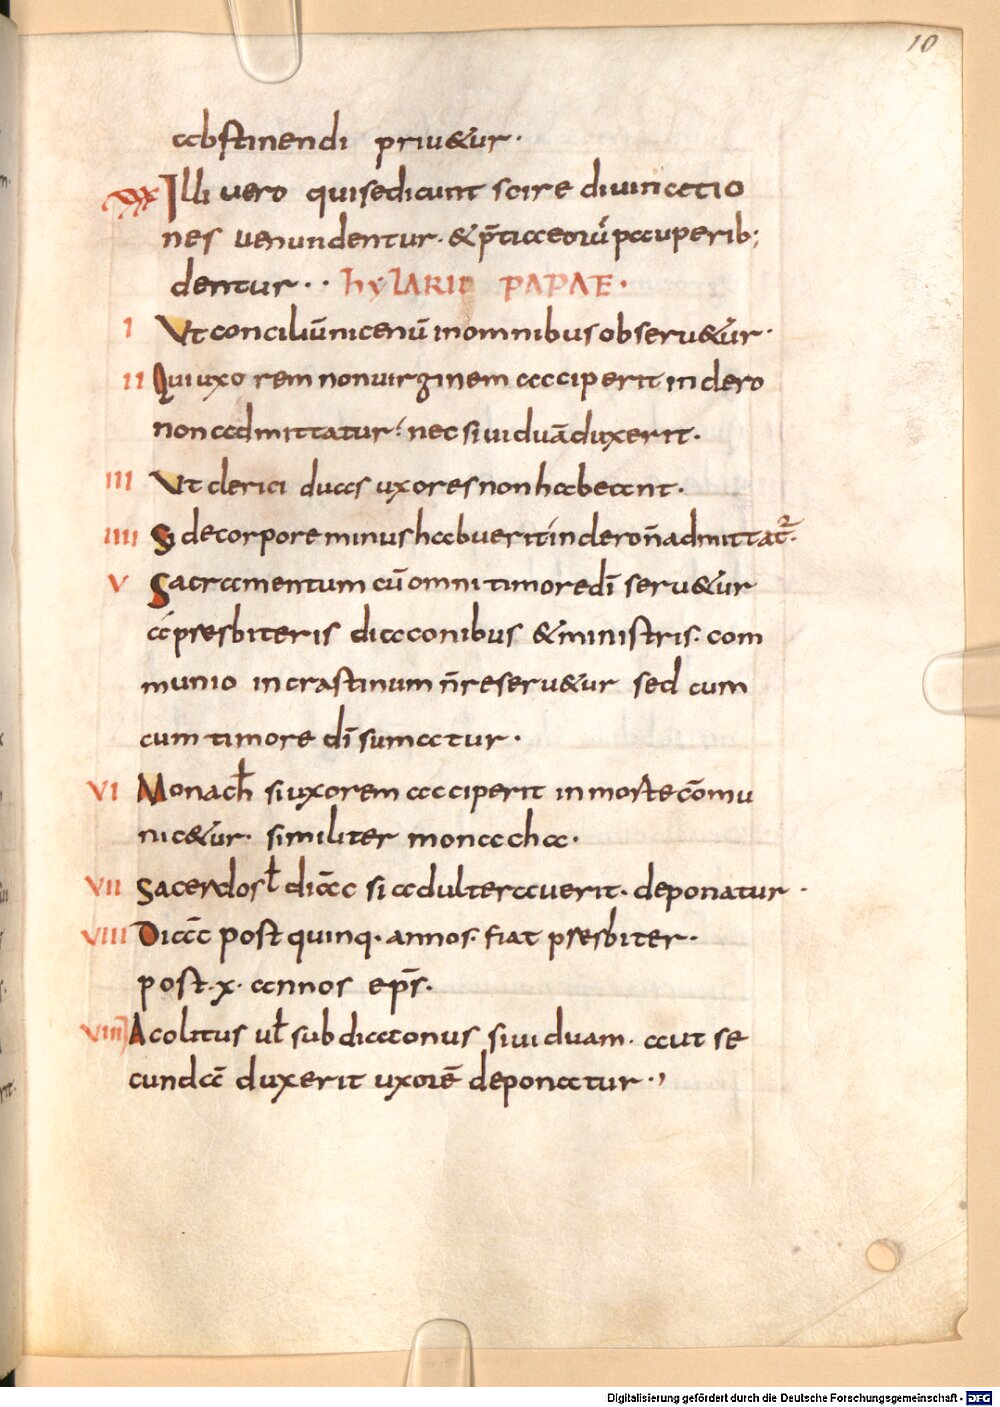 10
abstinendi priu&ur·
xxx Illi uero qui se dicunt scire diuinatio
nes uenundentur· & p̄tia eorū pauperib;
dentur·· hylARII PAPAE·
I Vt conciliū nicenū in omnibus obseru&ur·
II Qui uxorem non uirginem acciperit in clero
non admittatur· nec si uiduā duxerit·
III Vt clerici duas uxores non habeant·
IIII Si de corpore minus habuerit in clero n̄ admittat̄·
V Sacramentum cū omni timore dī seru&ur
a presbiteris diaconibus & ministris· com
munio in crastinum n̄ reseru&ur sed cum
cum timore dī sumatur·
VI Monach̄ si uxorem acciperit in morte cōmu
nic&ur· similiter monacha·
VII Sacerdos ł diac̄ si adulterauerit· deponatur·
VIII Diac̄ post quinq· annos· fiat presbiter·
post· x· annos ep̄s·
VIIII Acolitus uł subdiaconus si uiduam· aut se
cundā duxerit uxorē deponatur·,
Digitalisierung gefördert durch die Deutsche Forschungsgemeinschaft - DFG